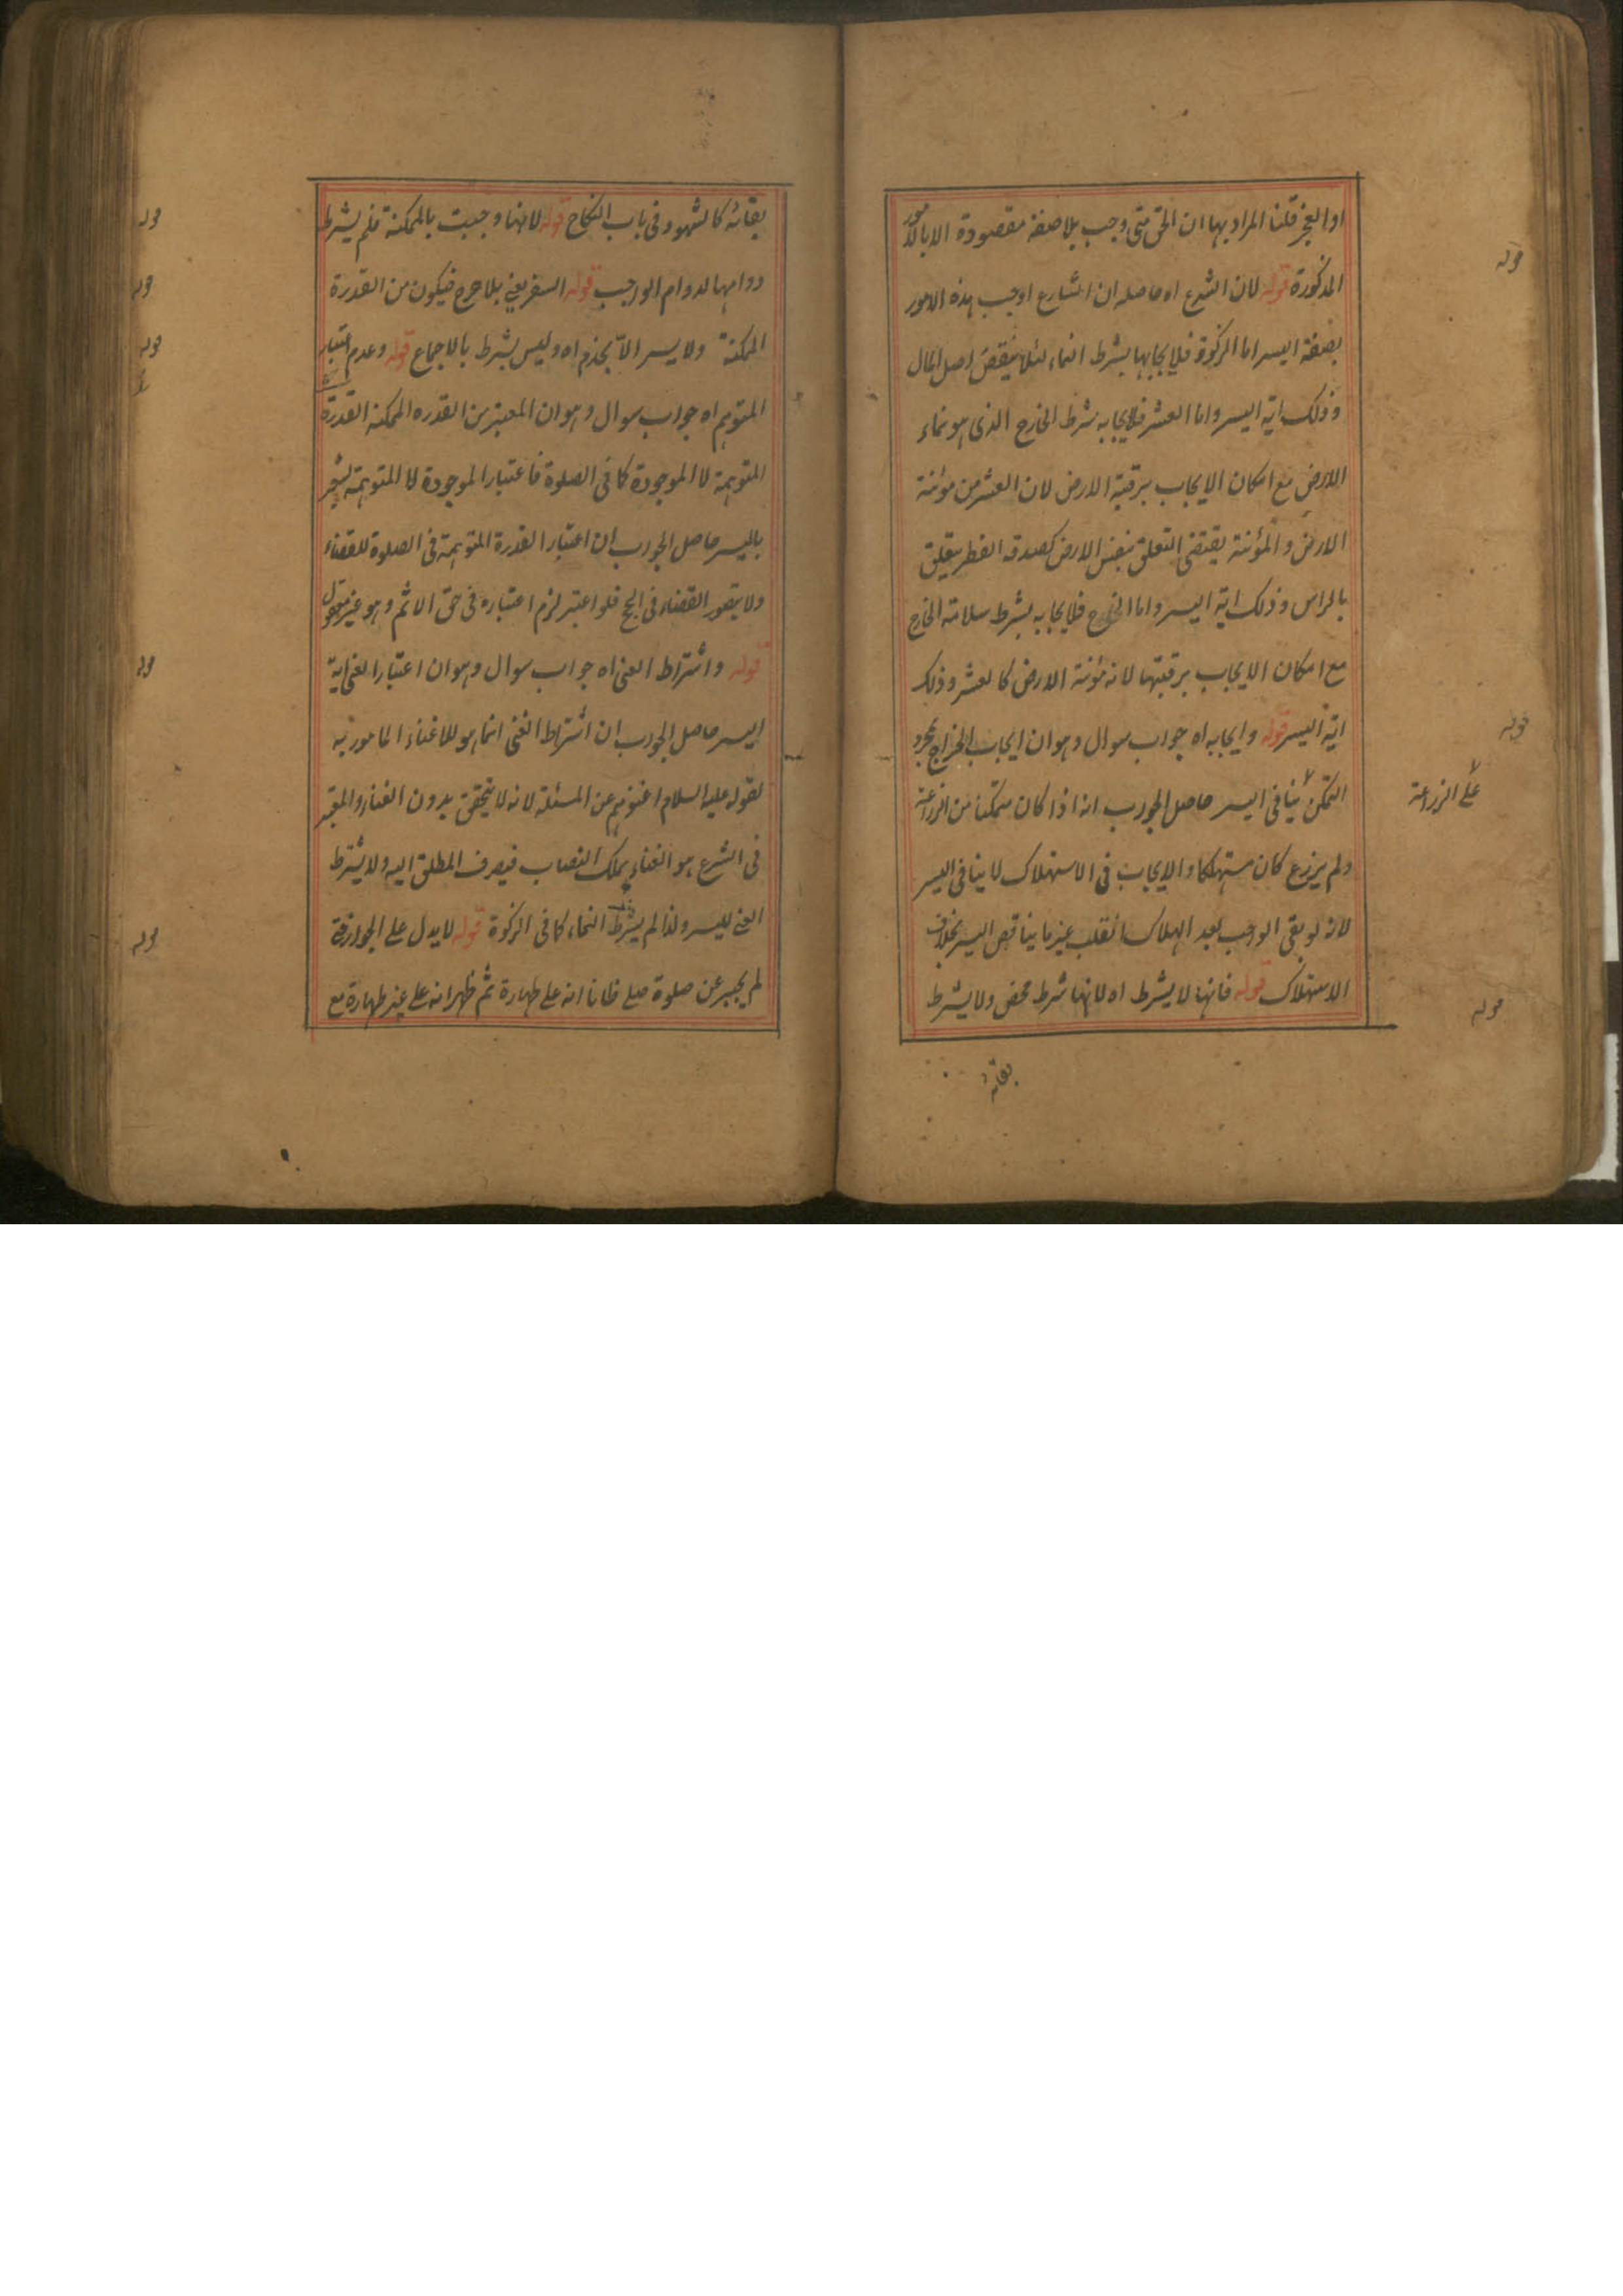 او العجز قلنا المراد بها ان الحق متى وجب بلا صفة مقصودة الا بالامور
المذكورة قوله لان الشرع اه حاصله ان الشارع اوجب هذه الامور
بصفة اليسر اما الزكوة فلايجابها بشرط النماء لئلا ينقص اصل المال
وذلك اية اليسر واما العشر فلايجابه بشرط الخارج الذى هو نماء
الارض مع امكان الايجاب برقبة الارض لان العشر من مؤنة
الارض والمؤنة يقتضى التعلق بنفس الارض كصدقة الفطر يتعلق
بالراس وذلك اية اليسر واما الخراج فلايجابه بشرط سلامة الخارج
مع امكان الايجاب برقبتها لانه مؤنة الارض كالعشر وذلك
اية اليسر قوله وايجابه اه جواب سوال وهو ان ايجاب الخراج بمجرد
التمكن ينافى اليسر حاصل الجواب انه اذا كان متمكنا من الزراعة
ولم يزرع كان مستهلكا والايجاب فى الاستهلاك لا ينافى اليسر
لانه لو بقى الواجب بعد الهلاك انقلب غيرما يناقض اليسر بخلاف
الاستهلاك قوله فانها لا يشرط اه لانها شرط محض ولا يشرط
بقائه
قوله
قوله
على الزراعة
قوله
بقائه كالشهود فى باب النكاح قوله لانها وجبت بالممكنة فلم يشرط
دوامها لدوام الواجب قوله السفر يعنى بلا حرج فيكون من القدرة
الممكنة ولا يسر الا بخدم اه وليس بشرط بالاجماع قوله وعدم اعتبار
المتوهم اه جواب سوال وهو ان المعتبر من القدره الممكنة القدرة
المتوهمة لا الموجودة كما فى الصلوة فاعتبار الموجودة لا المتوهمة يشعر
باليسر حاصل الجواب ان اعتبار القدرة المتوهمة فى الصلوة للقضاء
ولا يتصور القضاء فى الحج فلو اعتبر لزم اعتباره فى حق الاثم وهو غير معقول
قوله واشتراط الغنى اه جواب سوال وهو ان اعتبار الغنى اية
اليسر حاصل الجواب ان اشتراط الغنى انما هو للاغناء المامور به
لقوله عليه السلام اغنوهم عن المسئلة لانه لا يتحقق بدون الغناء والمعتبر
فى الشرع هو الغناء بملك النصاب فيصرف المطلق اليه ولا يشترط
الغنى لليسر ولذا لم يشرط النماء كما فى الزكوة قوله لا يدل على الجواز
لم يجبر عن صلوة صلى ظانا انه على طهارة ثم ظهر انه على غير طهارة مع
قوله
قوله
قوله
قوله
قوله